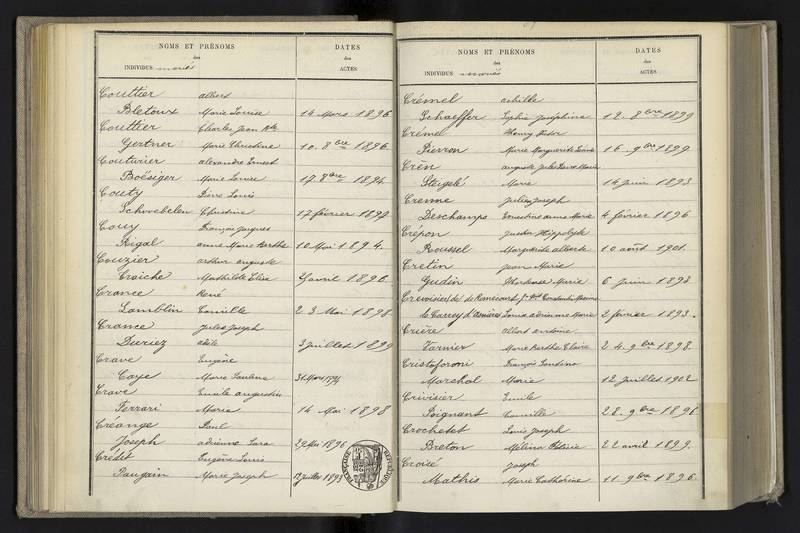 NOMS ET PRÉNOMS
des
INDIVIDUS mariés
DATES
des
ACTES
Couttier albert
Bletoux Marie Louise 14 Mars 1896
Couttier Charles Jean Bte
Gertner Marie Christine 10. 8bre 1896
Couturier alexandre Ernest
Boësiger Marie Louise 17 8bre 1894
Couty Pierre Louis
Schwebelen Christine 17 février 1897
Couy François Jacques
Rigal anne Marie Berthe 10 Mai 1894
Couzier arthur auguste
Craiche Mathilde Elisa avril 1896
Crance René
Lamblin Camille 23 Mai 1898
Crance Jules Joseph
Duriez adèle 3 juillet 1899
Crave Eugène
Caye Marie Pauline 31 Mars 1894
Crave Emile augustin
Ferrari Maria 14 Mai 1898
Créange Paul
Joseph adrienne Sara 29 Mai 1896
Crédit Eugène Louis
Paugain Marie Joseph Juillet 1893
NOMS ET PRÉNOMS
des
INDIVIDUS mariés
DATES
des
ACTES
Crémel achille
Schaeffer Sophie Joséphine 12. 8bre 1899
Crémel Henry Victor
Pierron Marie Marguerite 16. 9bre 1899
Crên auguste Jules Marie
Steigelé Marie 14 juin 1893
Crenne Julien Joseph
Deschamps Ernestine anne Marie 4 février 1896
Crépon Justin Hippolyte
Roussel Marguerite alberte 10 août 1901
Cretin Jean Marie
Gudin Marie 6 juin 1893
Crevoisier de Rancourt
le Carrey d'asnières Louise adrienne Marie 2 février 1893.
Crière albert antoine
Varnier Marie Berthe Claire 24. 9bre 1898.
Cristoforoni François
Marchal Marie 12 juillet 1902
Crivisier Emile
Poignant Camille 28. 9bre 1896
Crochetet Louis Joseph
Breton Mélina 22 avril 1899.
Croizé Joseph
Mathis Marie Catherine 11. 9bre 1896